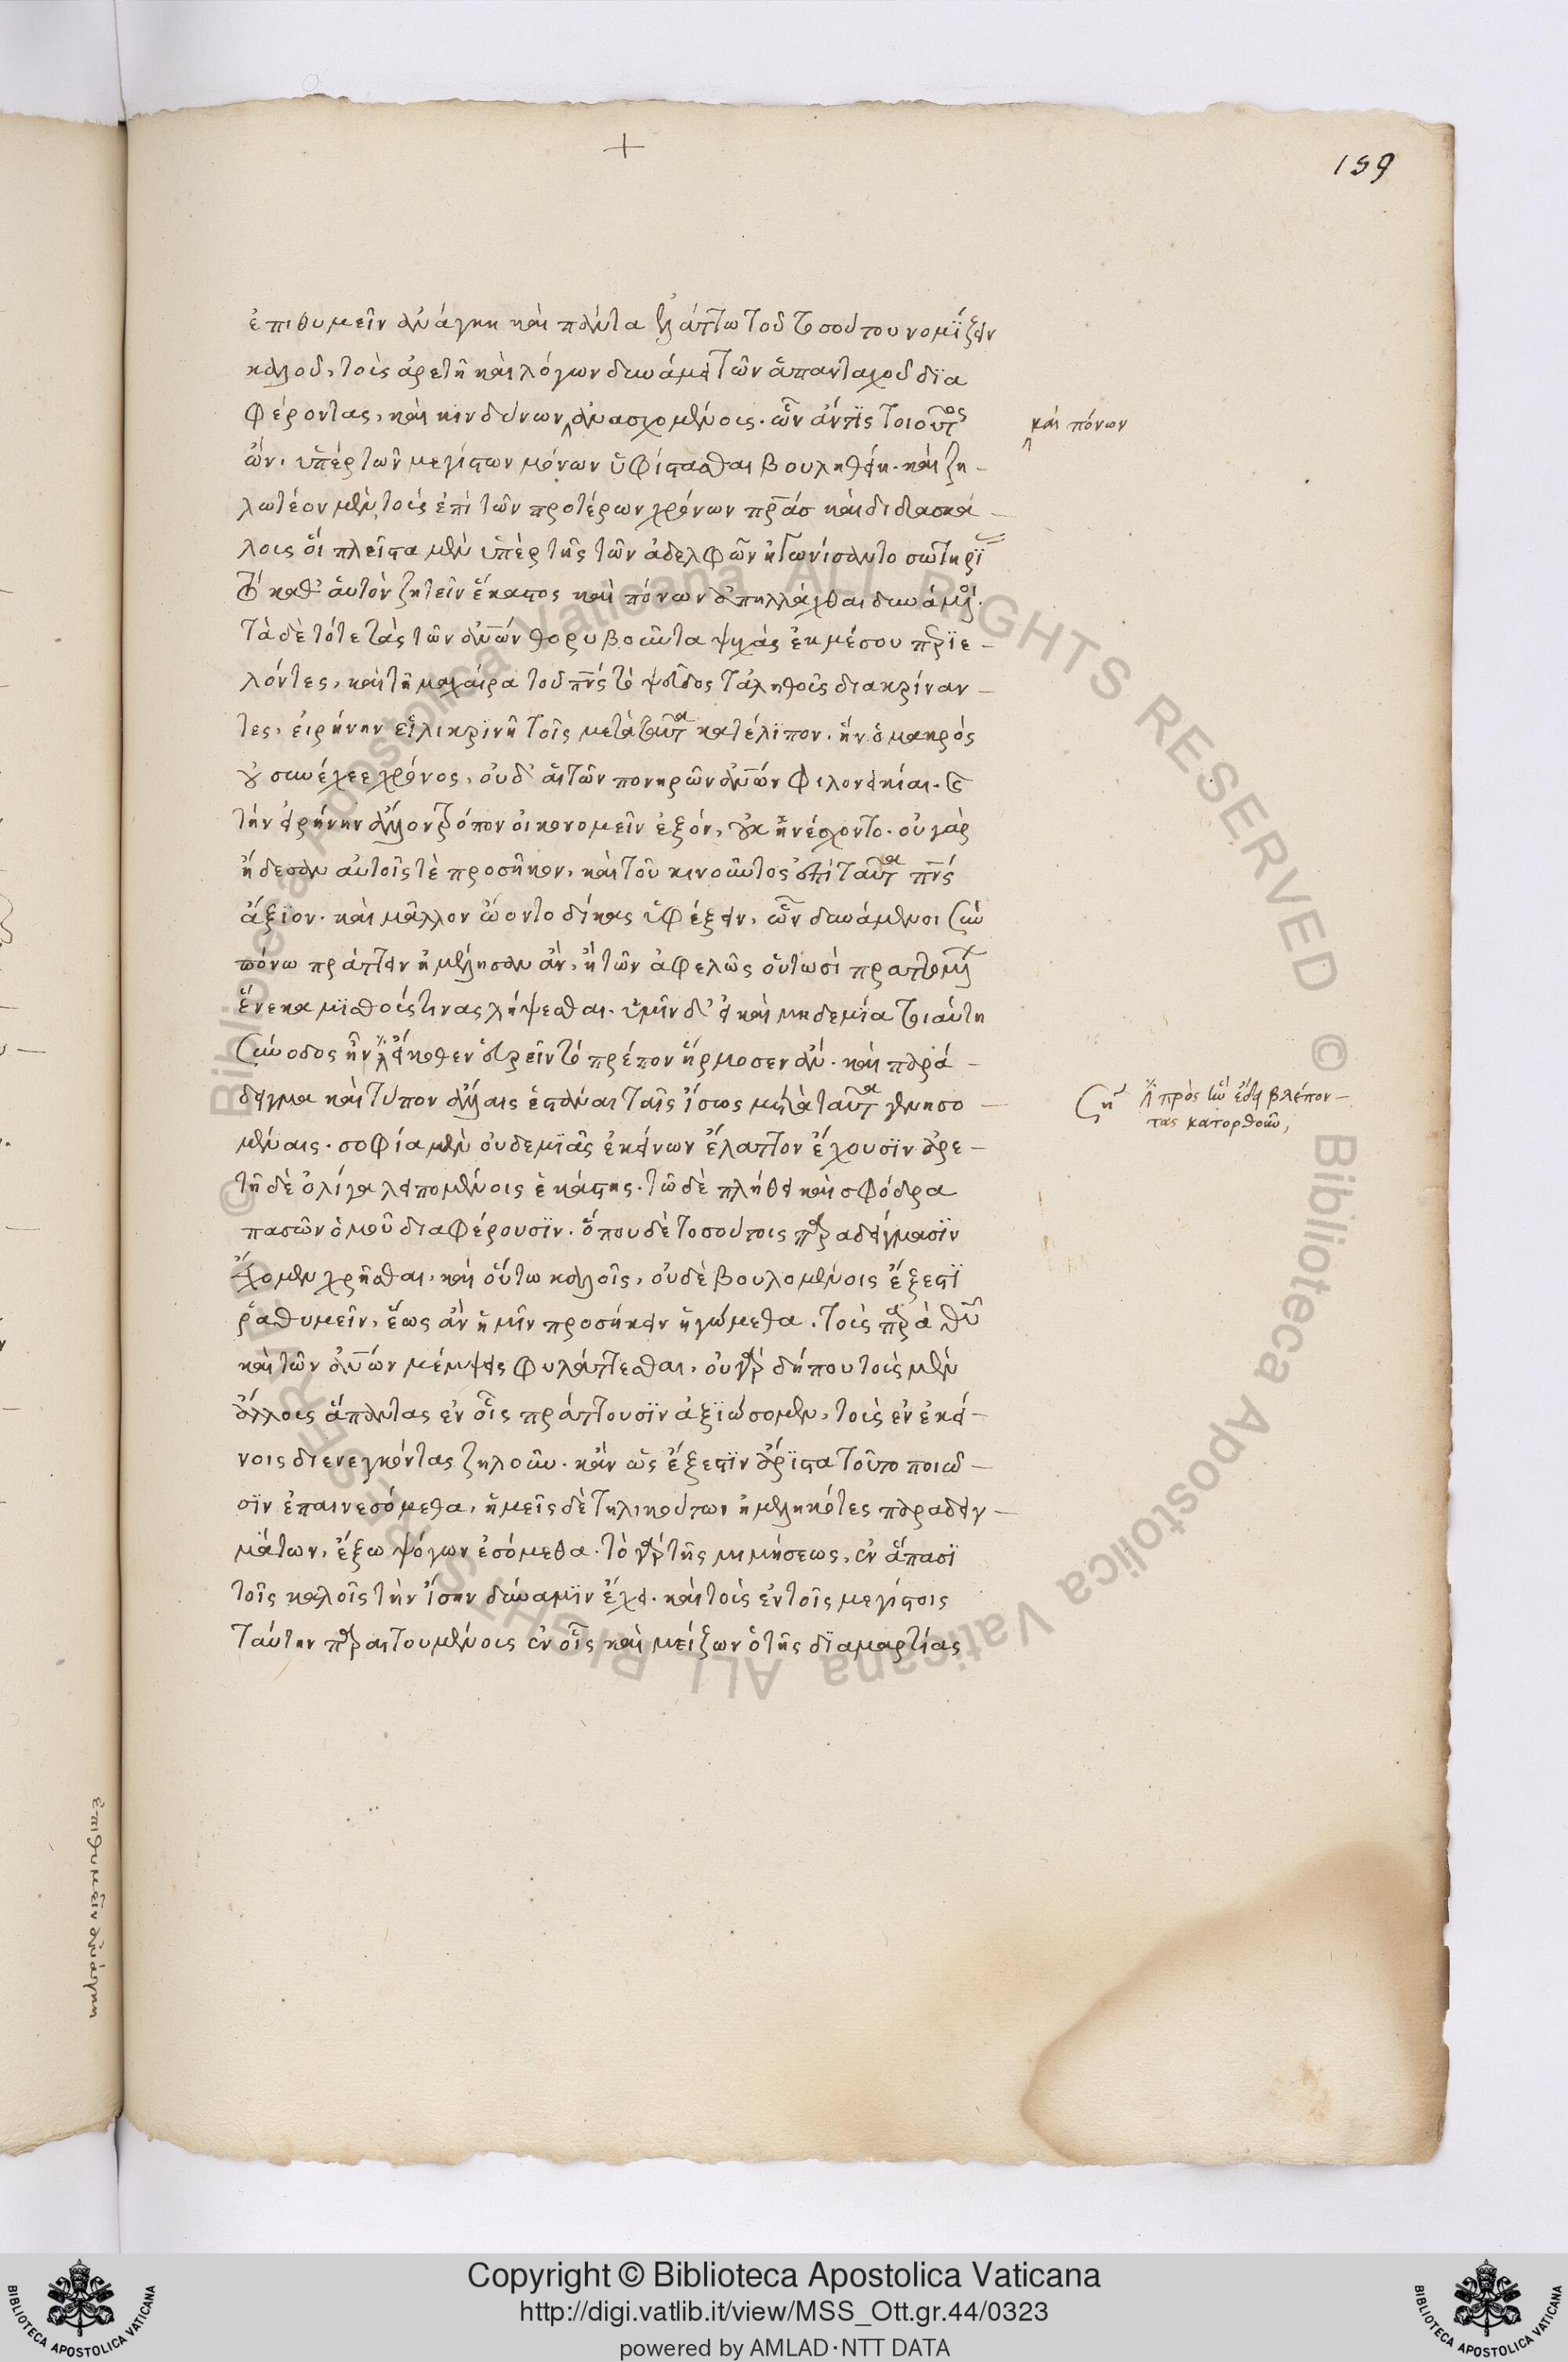 159
ἐπιθυμεῖν ἀνάγκη καὶ πάντα ἐλάττω τοῦ τοσούτου νομίζειν
καλοῦ, τοὺς ἀρετῇ καὶ λόγων δυνάμει τῶν ἁπανταχοῦ δια
φέροντας, καὶ κινδύνων ἀνασχομένοις. ὧν ἄν τις τοιοῦτος
καὶ πόνων
ὤν, ὑπὲρ τῶν μεγίστων μόνων ὑφίστασθαι βουληθείη. καὶ ζη-
λωτέον μὲν τοὺς ἐπὶ τῶν προτέρων χρόνων πρας καὶ διδασκά-
λους οἳ πλεῖστα μὲν ὑπὲρ τῆς τῶν ἀδελφῶν ἠγωνίσαντο σωτηρί
τὸ καθ' αὑτὸν ζητεῖν ἕκαστος καὶ πόνων ἀπηλλάχθαι δυνάμενοι.
τὰ δὲ τότε τὰς τῶν ανων θορυβοῦντα ψυχὰς ἐκ μέσου περιε-
λόντες, καὶ τῇ μαχαίρᾳ τοῦ πνς τὸ ψεῦδος τἀληθοῦς διακρίναν-
τες, εἰρήνην εἰλικρινῆ τοῖς μετὰ ταῦτα κατέλιπον. ἣν ὁ μακρὸς
οὐ συνέχεε χρόνος, οὐδ' αἱ τῶν πονηρῶν ανων φιλονεικίαι. καὶ
τὴν εἰρήνην ἄλλον τρόπον οἰκονομεῖν ἐξόν, οὐκ ἠνέσχοντο. οὐ γὰρ
ᾔδεσαν αὐτοῖς τὲ προσῆκον, καὶ τοῦ κινοῦντος ἐπὶ ταῦτα πνς
ἄξιον. καὶ μᾶλλον ᾤοντο δίκας ὑφέξειν, ὧν δυνάμενοι σὺν
πόνω πράττειν ἠμέλησαν ἄν, ἢ τῶν ἀφελῶς οὑτωσὶ πραττομένων
ἕνεκα μισθούς τινας λήψεσθαι. ὑμῖν δ' εἰ καὶ μηδεμία τοιαύτη
σύνοδος ἦν ἐκεῖθεν εὑρεῖν τὸ πρέπον ἥρμοσεν ἄν. καὶ παρά-
δειγμα καὶ τύπον ἄλλαις ἑστάναι ταῖς ἴσως μετὰ ταῦτα γενησο-
πρὸς ἣν ἔδει βλέπον-
τας κατορθοῦν,
μέναις. σοφία μὲν οὐδεμιᾶς ἐκείνων ἔλαττον ἔχουσιν ἀρε-
τῇ δὲ ὀλίγα λειπομένοις ἑκάστης. τῷ δὲ πλήθει καὶ σφόδρα
πασῶν ὁμοῦ διαφέρουσιν. ὅπου δὲ τοσούτοις παραδείγμασιν
ἔχομεν χρῆσθαι, καὶ οὕτω καλοῖς, οὐδὲ βουλομένοις ἔξεστι
ῥαθυμεῖν, ἕως ἂν ἡμῖν προσήκειν ἡγώμεθα. τοὺς παρὰ θυ
καὶ τῶν ανων μέμψεις φυλάττεσθαι. οὐ γὰρ δήπου τοὺς μὲν
ἄλλους ἅπαντας ἐν οἷς πράττουσιν ἀξιώσομεν, τοὺς ἐν ἐκεί-
νοις διενεγκόντας ζηλοῦν. κἂν ὡς ἔξεστιν ἄριστα τοῦτο ποιῶ-
σιν ἐπαινεσόμεθα, ἡμεῖς δὲ τηλικούτων ἠμεληκότες παραδειγ-
μάτων, ἔξω ψόγων ἐσόμεθα. τὸ γὰρ τῆς μιμήσεως, ἐν ἅπασι
τοῖς καλοῖς τὴν ἴσην δύναμιν ἔχει. καὶ τοὺς ἐν τοῖς μεγίστοις
ταύτην παραιτουμένοις ἐν οἷς καὶ μείζων ὁ τῆς διαμαρτίας
ἐπιθυμεῖν ἀνάγκη
Copyright © Biblioteca Apostolica Vaticana
http://digi.vatlib.it/view/MSS_Ott.gr.44/0323
powered by AMLAD·NTT DATA
BIBLIOTECA APOSTOLICA VATICANA
BIBLIOTECA APOSTOLICA VATICANA
© Biblioteca Apostolica Vaticana ALL RIGHTS RESERVED
© Biblioteca Apostolica Vaticana ALL RIGHTS RESERVED